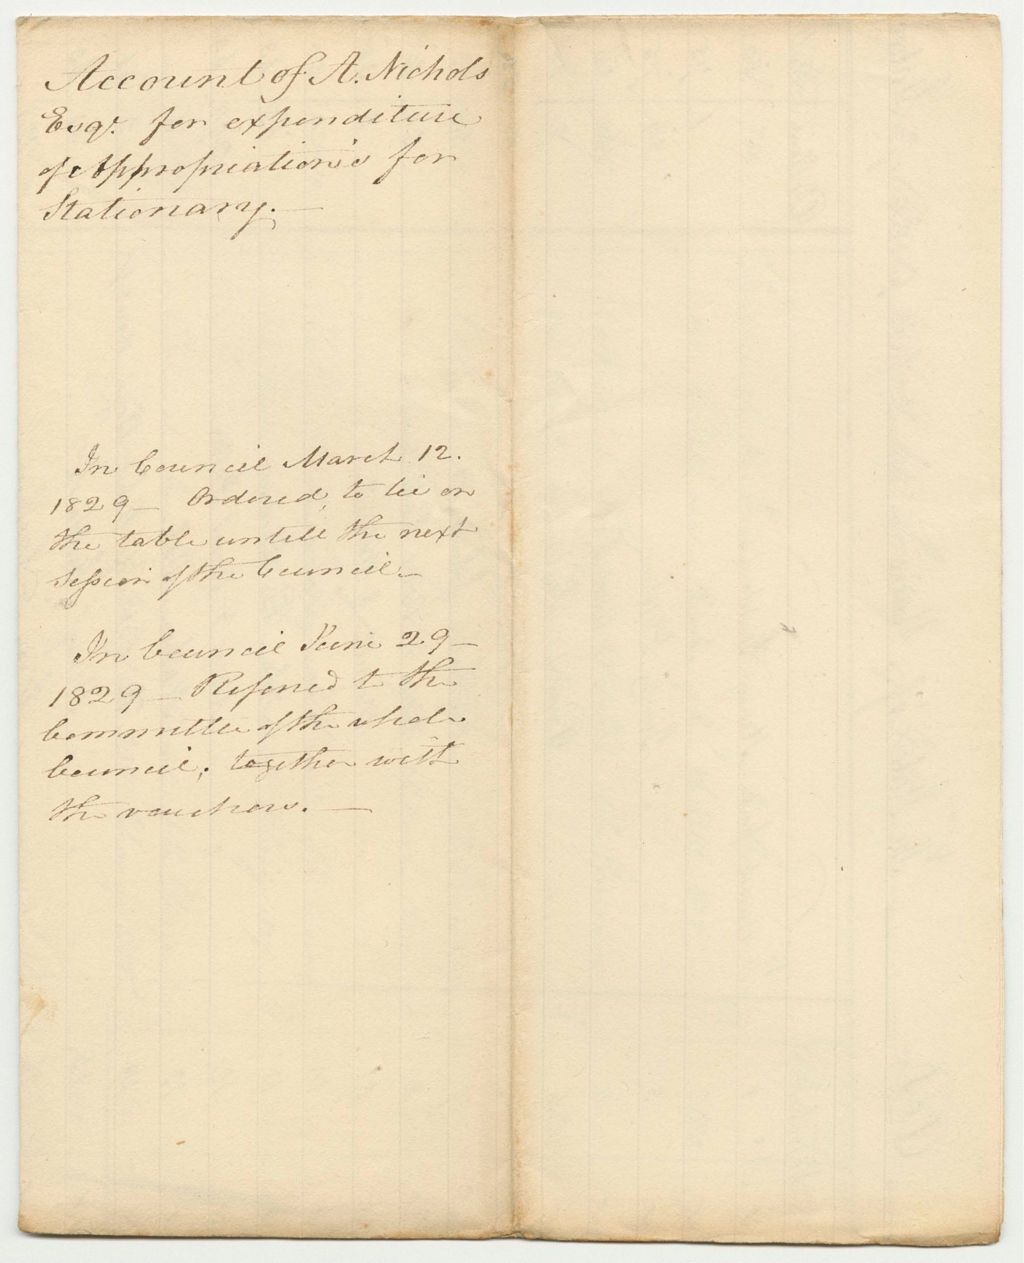 Account of A. Nichols
Esqr. for expenditure
of Appropriation's for
Stationary.
In Council March 12.
1829 - Ordered, to lie on
the table untill the next
session of the Council. -
In Council June 29 -
1829 - Referred to the
Committee of the whole
Council, together with
the vouchers. -